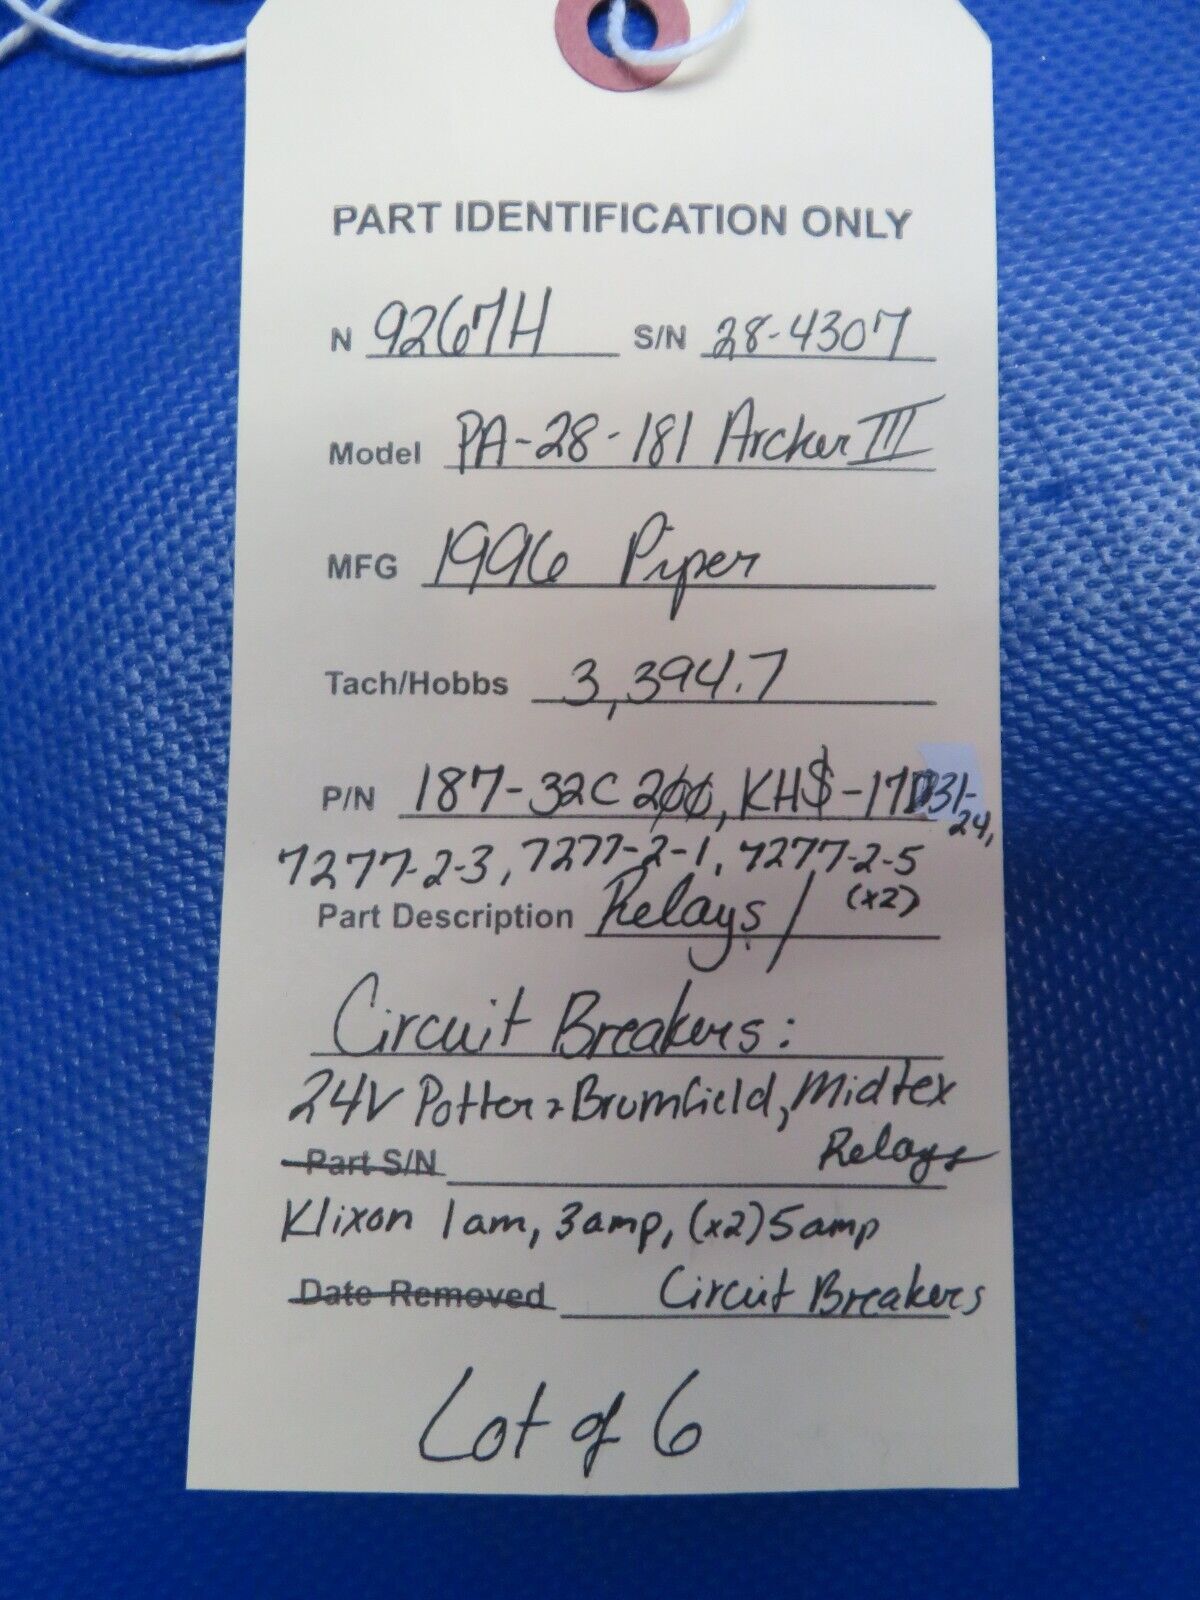 PART IDENTIFICATION ONLY
N 9267H S/N 28-4307
Model PA-28-181 Archer III
MFG 1996 Piper
Tach/Hobbs 3,394.7
P/N 187-32C200, KH$-17D31-24,
7277-2-3, 7277-2-1, 7277-2-5 (x2)
Part Description Relays /
Circuit Breakers:
24V Potter & Brumfield, Midtex
Part S/N Relays
Klixon 1am, 3amp, (x2) 5amp
Date Removed Circuit Breakers
Lot of 6